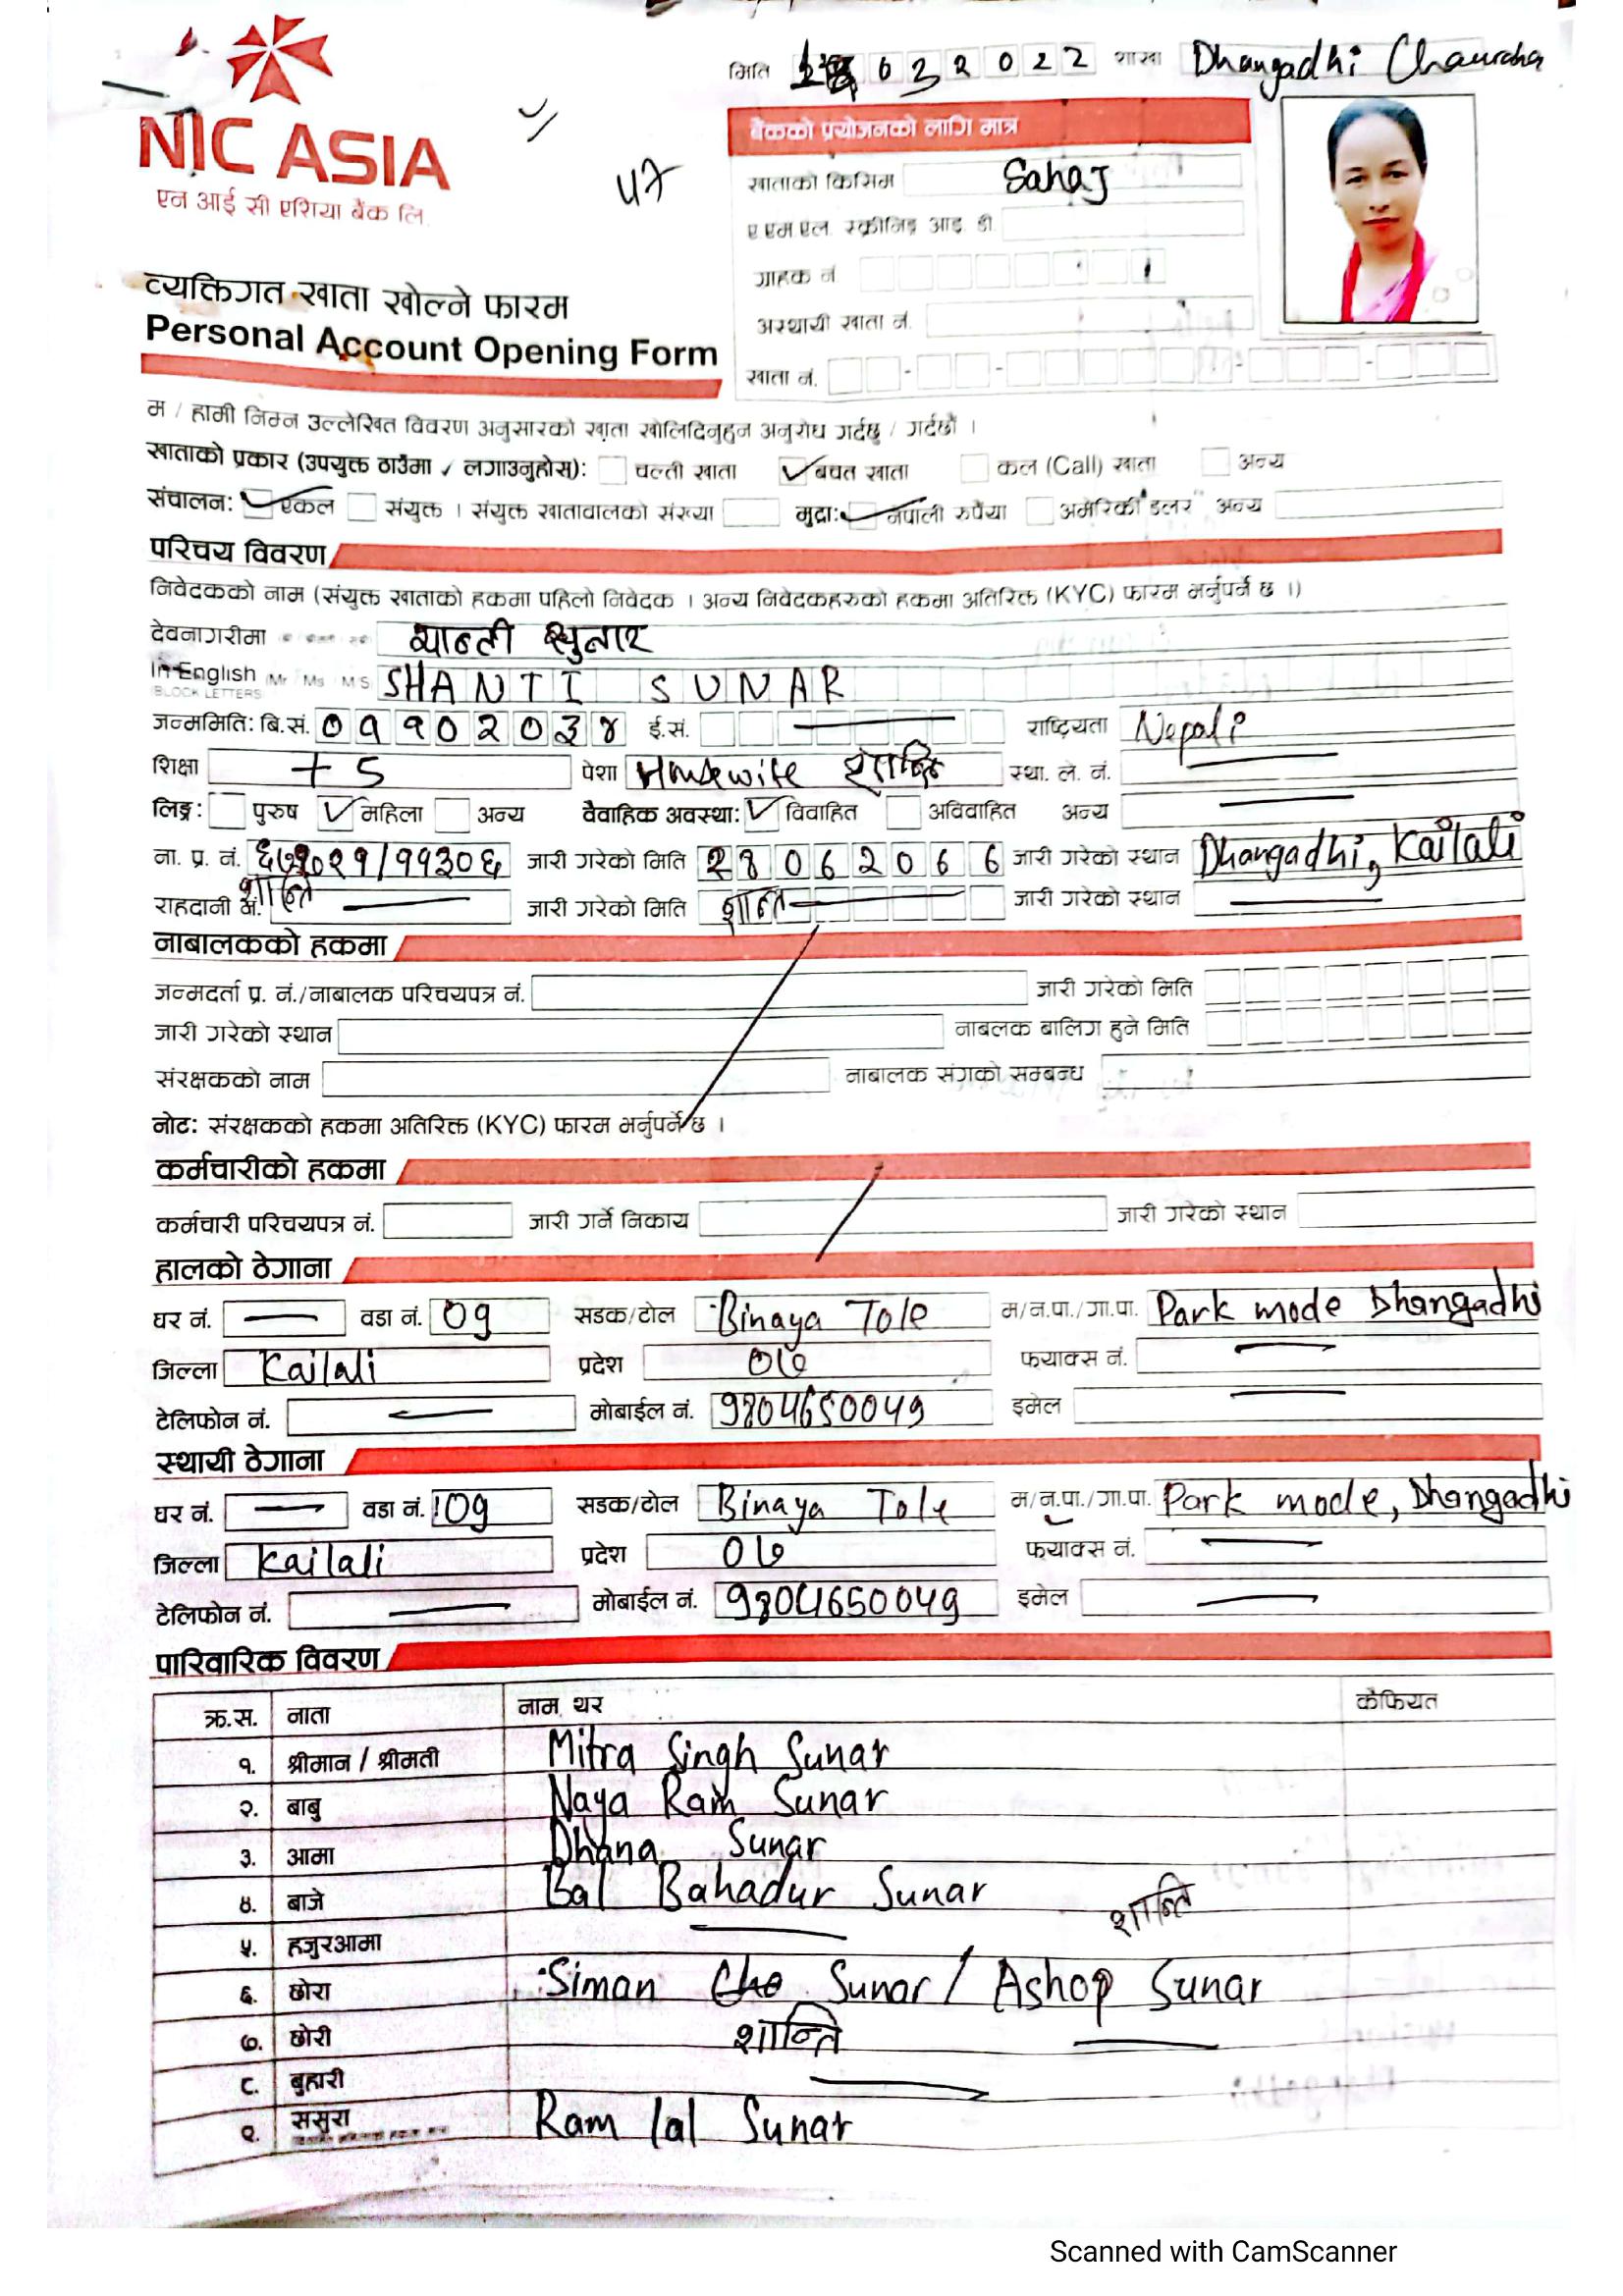 मिति 6 3 2 0 2 2 शाखा Dhangadhi Chauraha
NIC ASIA
एन आई सी एशिया बैंक लि.
बैंकको प्रयोजनको लागि मात्र
खाताको किसिम Sahaj
ए एम एल स्क्रीनिङ आइ. डी.
ग्राहक नं
अस्थायी खाता नं.
खाता नं.
व्यक्तिगत खाता खोल्ने फारम
Personal Account Opening Form
म / हामी निम्न उल्लेखित विवरण अनुसारको खाता खोलिदिनुहुन अनुरोध गर्दछु / गर्दछौं ।
खाताको प्रकार (उपयुक्त ठाउँमा ✓ लगाउनुहोस्): चल्ती खाता ✓ बचत खाता कल (Call) खाता अन्य
संचालन: ✓ एकल संयुक्त । संयुक्त खातावालको संख्या मुद्रा: ✓ नेपाली रुपैंया अमेरिकी डलर अन्य
परिचय विवरण
निवेदकको नाम (संयुक्त खाताको हकमा पहिलो निवेदक । अन्य निवेदकहरुको हकमा अतिरिक्त (KYC) फारम भर्नुपर्ने छ ।)
देवनागरीमा शान्ती सुनार
In English Mr Ms M/S SHANTI SUNAR
(BLOCK LETTERS)
जन्ममिति: बि.सं. ०११०२०३४ ई.सं. राष्ट्रियता Nepali
शिक्षा +5 पेशा Housewife शान्ति स्था. ले. नं.
लिङ्ग: पुरुष ✓ महिला अन्य वैवाहिक अवस्था: ✓ विवाहित अविवाहित अन्य
ना. प्र. नं. जारी गरेको मिति 2 8 0 6 2 0 6 6 जारी गरेको स्थान Dhangadhi, Kailali
शान्ति
राहदानी नं. जारी गरेको मिति शान्ति जारी गरेको स्थान
नाबालकको हकमा
जन्मदर्ता प्र. नं./नाबालक परिचयपत्र नं. जारी गरेको मिति
जारी गरेको स्थान नाबलक बालिग हुने मिति
संरक्षकको नाम नाबालक संगको सम्बन्ध
नोट: संरक्षकको हकमा अतिरिक्त (KYC) फारम भर्नुपर्ने छ ।
कर्मचारीको हकमा
कर्मचारी परिचयपत्र नं. जारी गर्ने निकाय जारी गरेको स्थान
हालको ठेगाना
घर नं. वडा नं. 09 सडक/टोल Binaya Tole म/न.पा./गा.पा. Park mode Dhangadhi
जिल्ला Kailali प्रदेश ०७ फ्याक्स नं.
टेलिफोन नं. मोबाईल नं. 9804650049 इमेल
स्थायी ठेगाना
घर नं. वडा नं. 09 सडक/टोल Binaya Tole म/न.पा./गा.पा. Park mode, Dhangadhi
जिल्ला Kailali प्रदेश ०७ फ्याक्स नं.
टेलिफोन नं. मोबाईल नं. 9804650049 इमेल
पारिवारिक विवरण
क्र.स. नाता नाम, थर कैफियत
१. श्रीमान / श्रीमती Mitra Singh Sunar
२. बाबु Naya Ram Sunar
३. आमा Dhana Sunar
४. बाजे Bal Bahadur Sunar शान्ति
५. हजुरआमा
६. छोरा Siman Sunar / Ashop Sunar
७. छोरी शान्ति
८. बुहारी
९. ससुरा Ram lal Sunar
Scanned with CamScanner